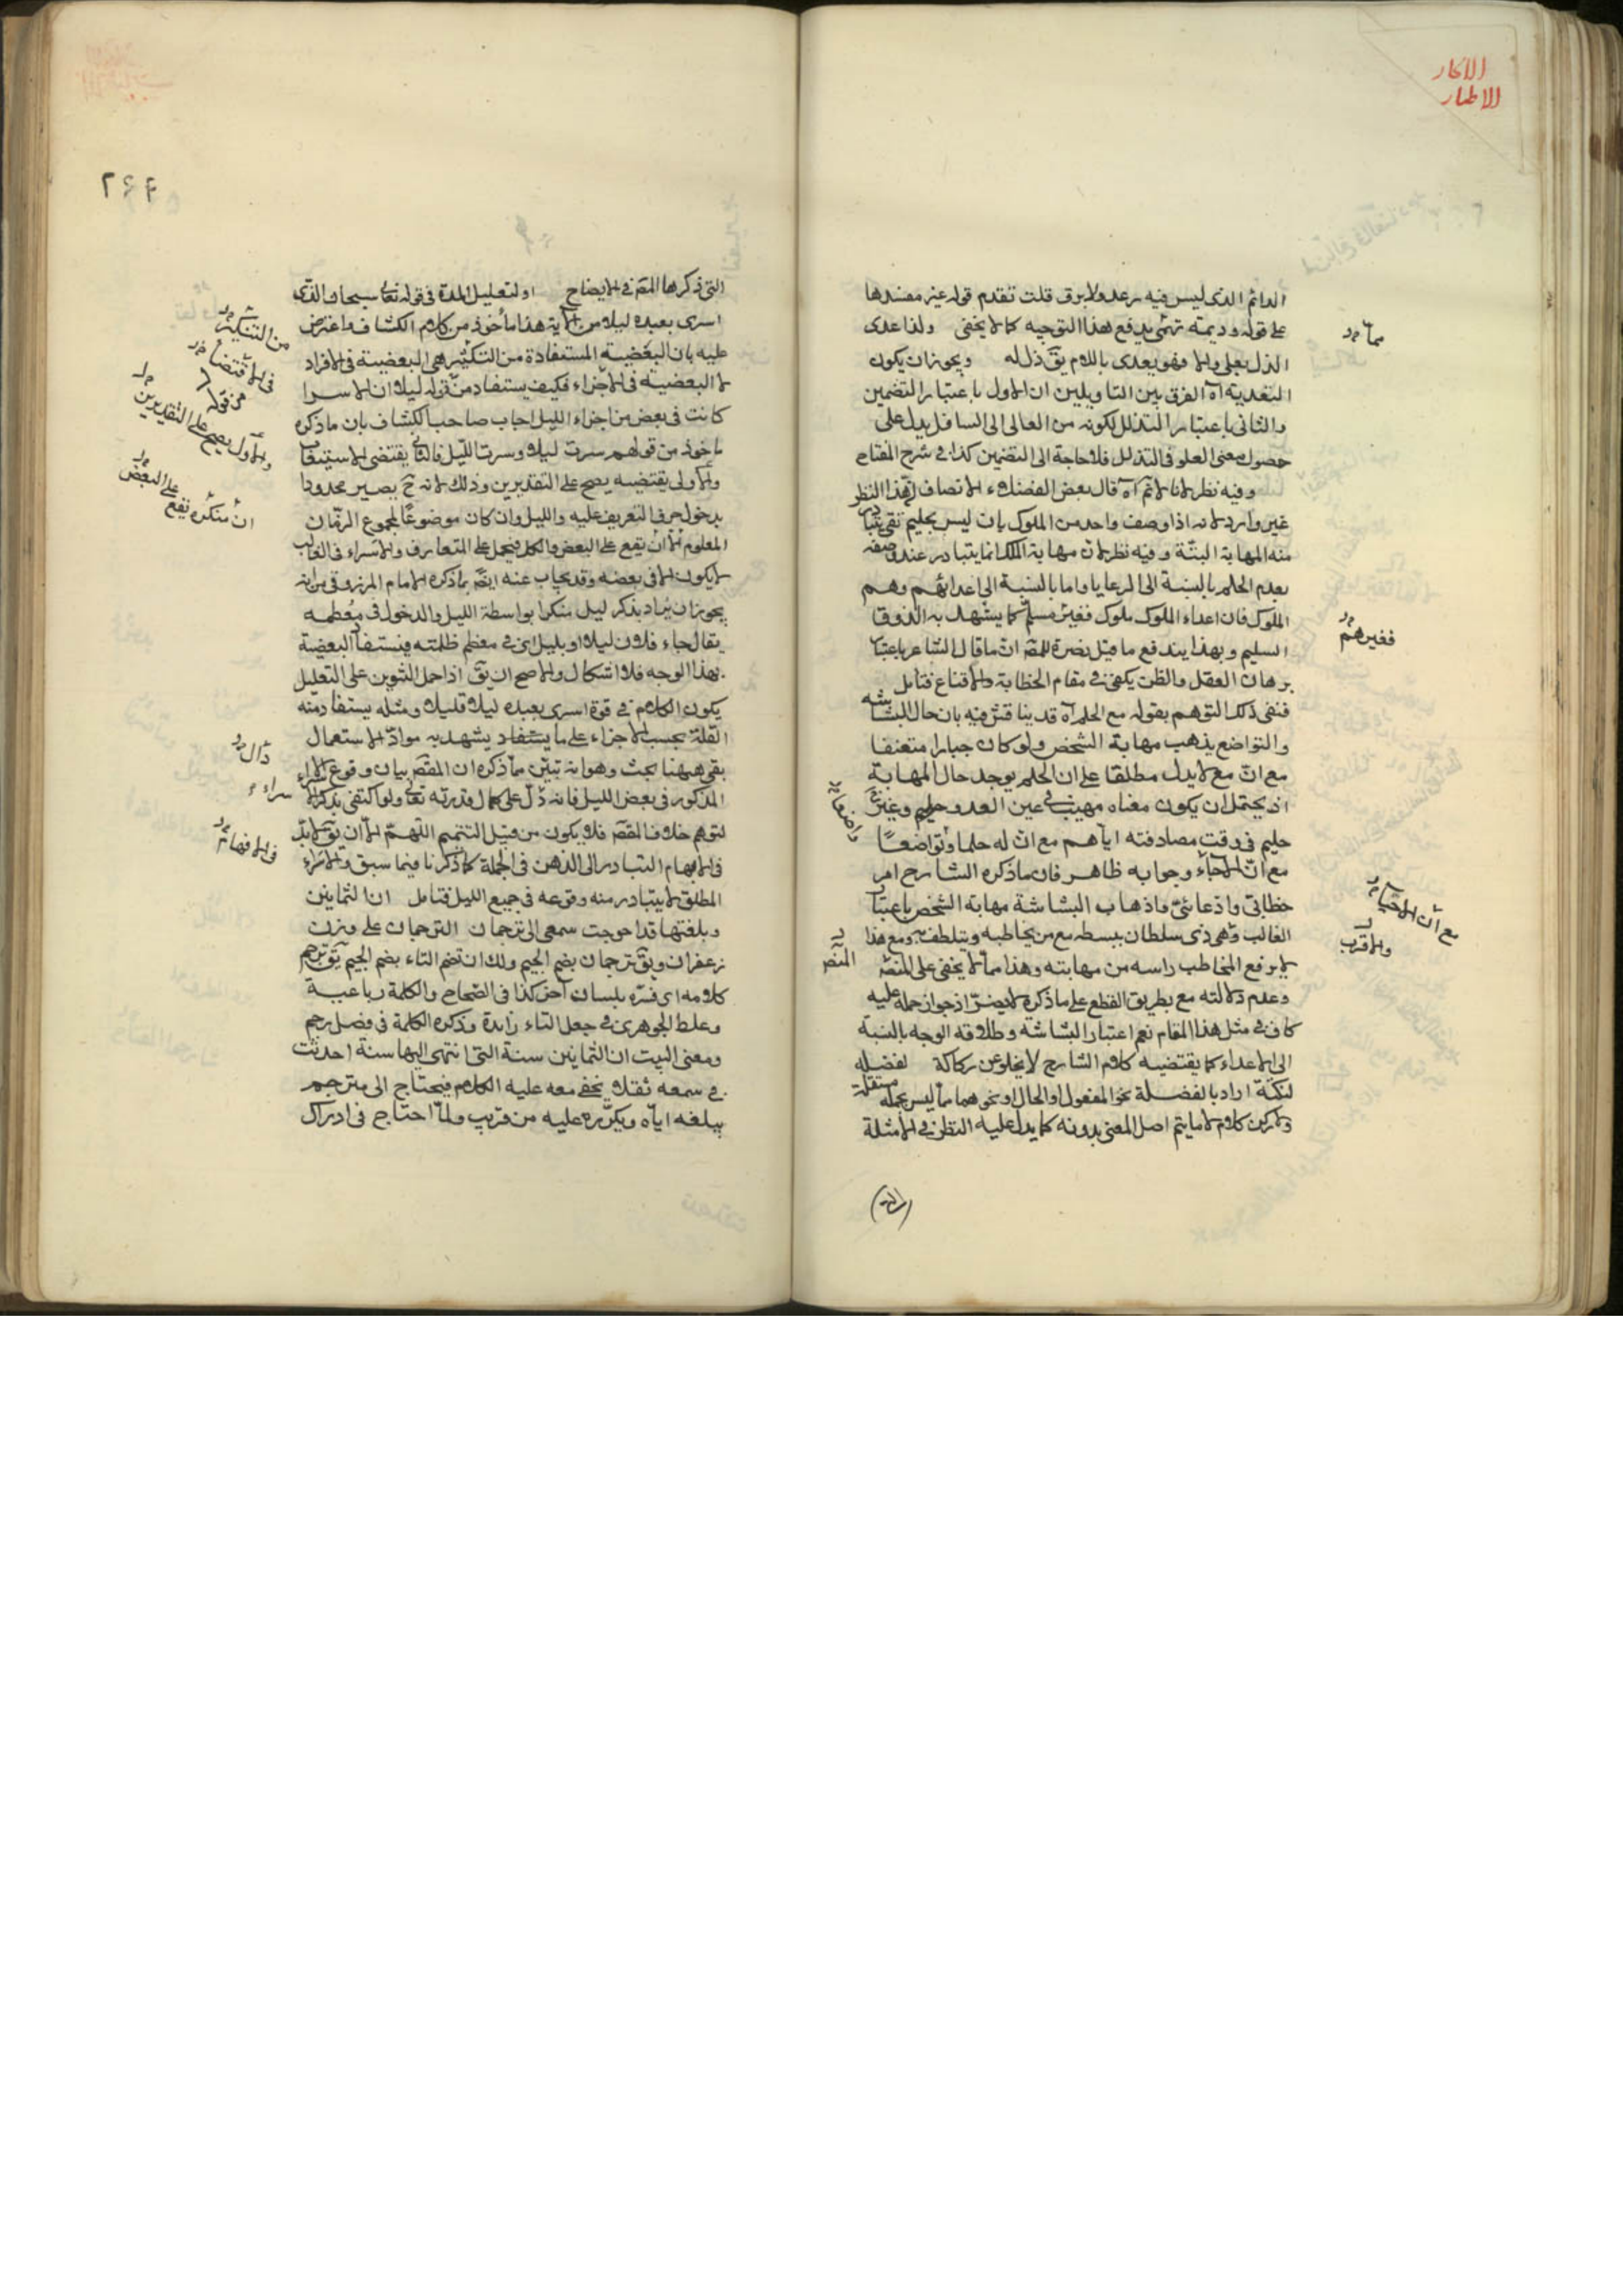 الدائم الذى ليس فيه رعد ولا برق قلت تقدم قوله غير مفسدها
على قوله وديمة تهمى يدفع هذا التوجيه كما لا يخفى ولذا عدى
الذل بعلى والا فهو يعدى باللام يق ذل له ويجوز ان يكون
التعدية آه الفرق بين التاويلين ان الاول باعتبار التضمين
والثانى باعتبار التذلل لكونه من العالى الى السافل يدل على
حصول معنى العلو فى التذلل فلا حاجة الى التضمين كذا فى شرح المفتاح
وفيه نظر لانا لا ثم آه قال بعض الفضلاء الانصاف ان هذا النظر
غير وارد لانه اذا وصف واحد من الملوك بانه ليس بحليم
منه المهابة البتة وفيه نظر لان مهابة الملك انما يتبادر عند وصفه
بعدم الحلم بالنسبة الى الرعايا واما بالنسبة الى اعدائهم وهم
الملوك فان اعداء الملوك ملوك فغير مسلم كما يشهد به الذوق
السليم وبهذا يندفع ما قيل نصرة للمص ان ما قال الشاعر باعتبار
برهان العقل والظن يكفى فى مقام الخطابة والاقناع فتامل
فنفى ذلك التوهم بقوله مع الحلم آه قد يناقش فيه بان حال البشاشة
والتواضع يذهب مهابة الشخص ولو كان جبارا متعنفا
مع ان مع لا يدل مطلقا على ان الحلم يوجد حال المهابة
اذ يحتمل ان يكون معناه مهيب فى عين العدو حليم وغير
حليم فى وقت مصادفته اياهم مع ان له حلما وتواضعا
مع ان الاحباء وجوابه ظاهر فان ما ذكره الشارح امر
خطابى وادعائى واذهاب البشاشة مهابة الشخص باعتبار
الغالب وهى ذى سلطان ببسطه مع من يخاطبه ويتلطف به ومع هذا
لا يرفع المخاطب راسه من مهابته وهذا مما لا يخفى على المنصف
وعدم دلالته مع بطريق القطع على ما ذكره لا يضر اذ جواز حمله عليه
كاف فى مثل هذا المقام نعم اعتبار البشاشة وطلاقة الوجه بالنسبة
الى الاعداء كما يقتضيه كلام الشارح لا يخلو عن ركاكة لفضلة
لنكتة اراد بالفضلة نحو المفعول او الحال او نحوهما مما ليس بجملة مستقلة
ولا ركن كلام لا ما يتم اصل المعنى بدونه كما يدل عليه النظر فى الامثلة
مما
فغيرهم
مع ان الاحباء
والاقرب
المنص
٢٤٤
التى ذكرها المص فى الايضاح او لتعليل المدة فى قوله تعالى سبحان الذى
اسرى بعبده ليلا من الآية هذا ماخوذ من كلام الكشاف واعترض
عليه بان البعضية المستفادة من التنكير هى البعضية فى الافراد
لا البعضية فى الاجزاء فكيف يستفاد من قوله ليلا ان الاسرا
كانت فى بعض من اجزاء الليل اجاب صاحب الكشاف بان ما ذكره
ماخوذ من قولهم سرت ليلا وسرت الليل فالثانى يقتضى الاستيعاب
والاولى يقتضيه يصح على التقديرين وذلك لانه ح يصير محدودا
بدخول حرف التعريف عليه والليل وان كان موضوعا لمجموع الزمان
المعلوم الا ان يقع على البعض والكل فيحمل على المتعارف والاسراء فى الغالب
لا يكون الا فى بعضه وقد يجاب عنه ايضا بما ذكره الامام المرزوقى من انه
يجوز ان يراد بذكر ليل منكرا بواسطة الليل والدخول فى معظمه
يقال جاء فلان ليلا او بليل اى فى معظم ظلمته فيستفاد البعضية
بهذا الوجه فلا اشكال والاصح ان يق اذا حمل التنوين على التقليل
يكون الكلام فى قوة اسرى بعبده ليلا قليلا ومثله يستفاد منه
القلة بحسب الاجزاء على ما يستفاد يشهد به مواد الاستعمال
بقى ههنا بحث وهو انه تبين مما ذكره ان المقص بيان وقوع الاسراء
المذكور فى بعض الليل فانه دل على كمال قدرته تعالى ولو اكتفى بذكر الاسراء
لتوهم خلاف المقص فلا يكون من قبيل التتميم اللهم الا ان يق لا بد
فى الايهام التبادر الى الذهن فى الجملة كما ذكرنا فيما سبق والاسراء
المطلق لا يتبادر منه وقوعه فى جميع الليل فتامل ان الثمانين
وبلغتها قد احوجت سمعى الى ترجمان الترجمان على وزن
زعفران ويق ترجمان بضم الجيم ولك ان تضم التاء بضم الجيم يق ترجم
كلامه اى فسره بلسان آخر كذا فى الصحاح والكلمة رباعية
وغلط الجوهرى فى جعل التاء زايدة وذكره الكلمة فى فصل رجم
ومعنى البيت ان الثمانين سنة التى انتهى اليها سنة احدثت
فى سمعه ثقلا يخفى معه عليه الكلام فيحتاج الى مترجم
يبلغه اياه ويكرره عليه من قريب ولما احتاج فى ادراك
من التنكير
فى الاقتضا
من قوله
والاول يصح على التقديرين
ان منكره يقع على البعض
دال
سراء
فى الافهام